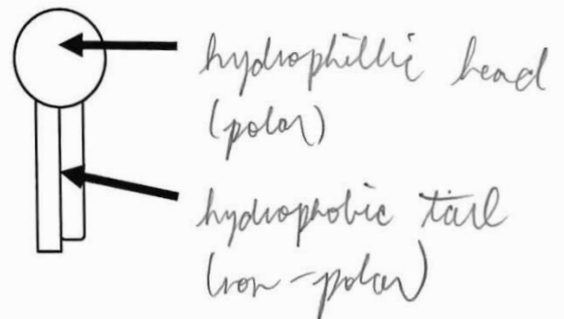 hydrophillic head
(polar)
hydrophobic tail
(non-polar)